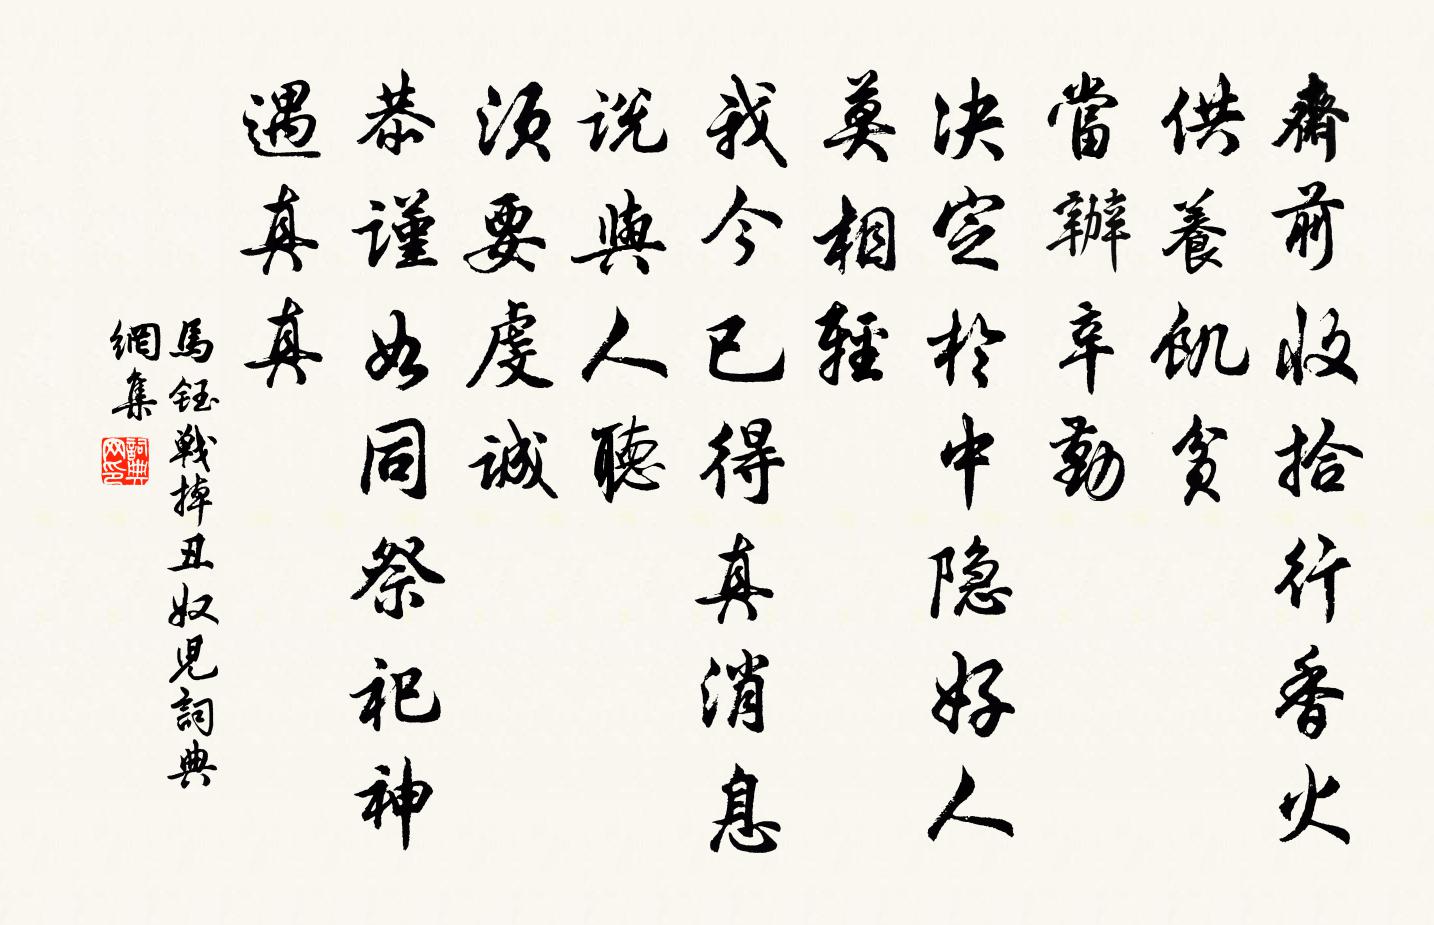 齋前收拾行香火
供養飢貧
當辦辛勤
決定於中隱好人
莫相輕
我今已得真消息
說與人聽
須要虔誠
恭謹如同祭祀神
遇真真
馬鈺戰掉丑奴兒詞典
網集
詞典
网印